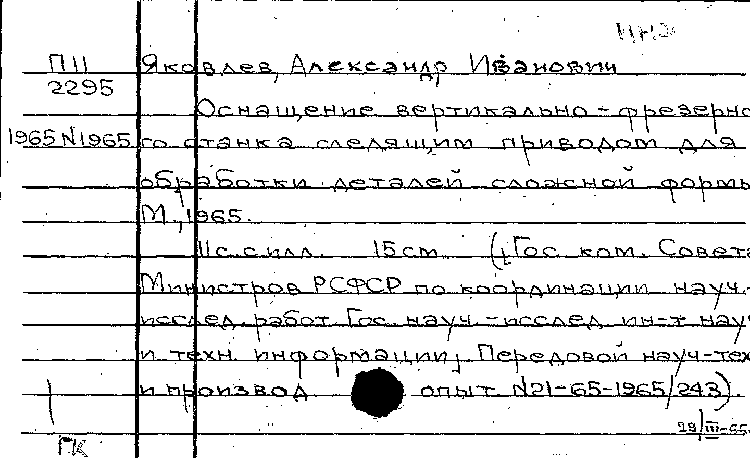 П11 Яковлев, Александр Иванович
2295
Оснащение вертикально-фрезерно
1965 N1965 го станка следящим приводом для
обработки деталей сложной формы
М., 1965.
11 с. с илл. 15 см (Гос. ком. Совета
Министров РСФСР по координации науч.-
исслед. работ. Гос. науч.-исслед. ин-т науч
и техн. информации, Передовой науч-тех
и производ опыт. N21-65-1965/243).
28/III-65
ГК